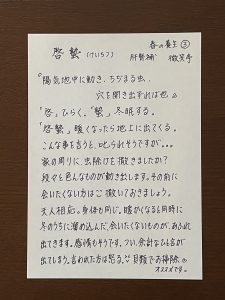 春の養生③
啓蟄(けいちつ) 肝腎補 微笑亭
『陽気地中に動き、ちぢまる虫、
穴を開き出ずれば也』
『啓』ひらく。『蟄』冬眠する。
『啓蟄』暖くなったら地上に出てくる。
こんな事を言うと、叱られそうですが…
家の周りに、虫除けを撒きましたか?
段々と色んなものが動き出します。その前に
会いたくない方はご撒いておきましょう。
天人相応。身体も同じ。暖かくなると同時に
冬のうちに溜め込んだ、会いたくないものが、あふれ
出てきます。感情もそうです。つい、余計なひと言が
出てしまう。言われた方は怒る。
貝類でお掃除
オススメです。